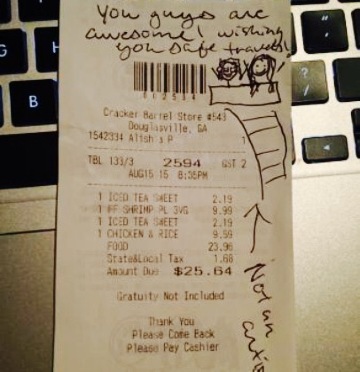 You guys are
awesome! wishing
you safe travels!
002594
Cracker Barrel Store #543
Douglasville, GA
1542334 Alisha P 1
TBL 133/3 2594 GST 2
AUG15'15 6:35PM
1 ICED TEA SWEET 2.19
1 FF SHRIMP PL 3VG 9.99
1 ICED TEA SWEET 2.19
1 CHICKEN & RICE 9.59
FOOD 23.96
State&Local Tax 1.68
Amount Due $25.64
Gratuity Not Included
Thank You
Please Come Back
Please Pay Cashier
Not an
G
H
B
N